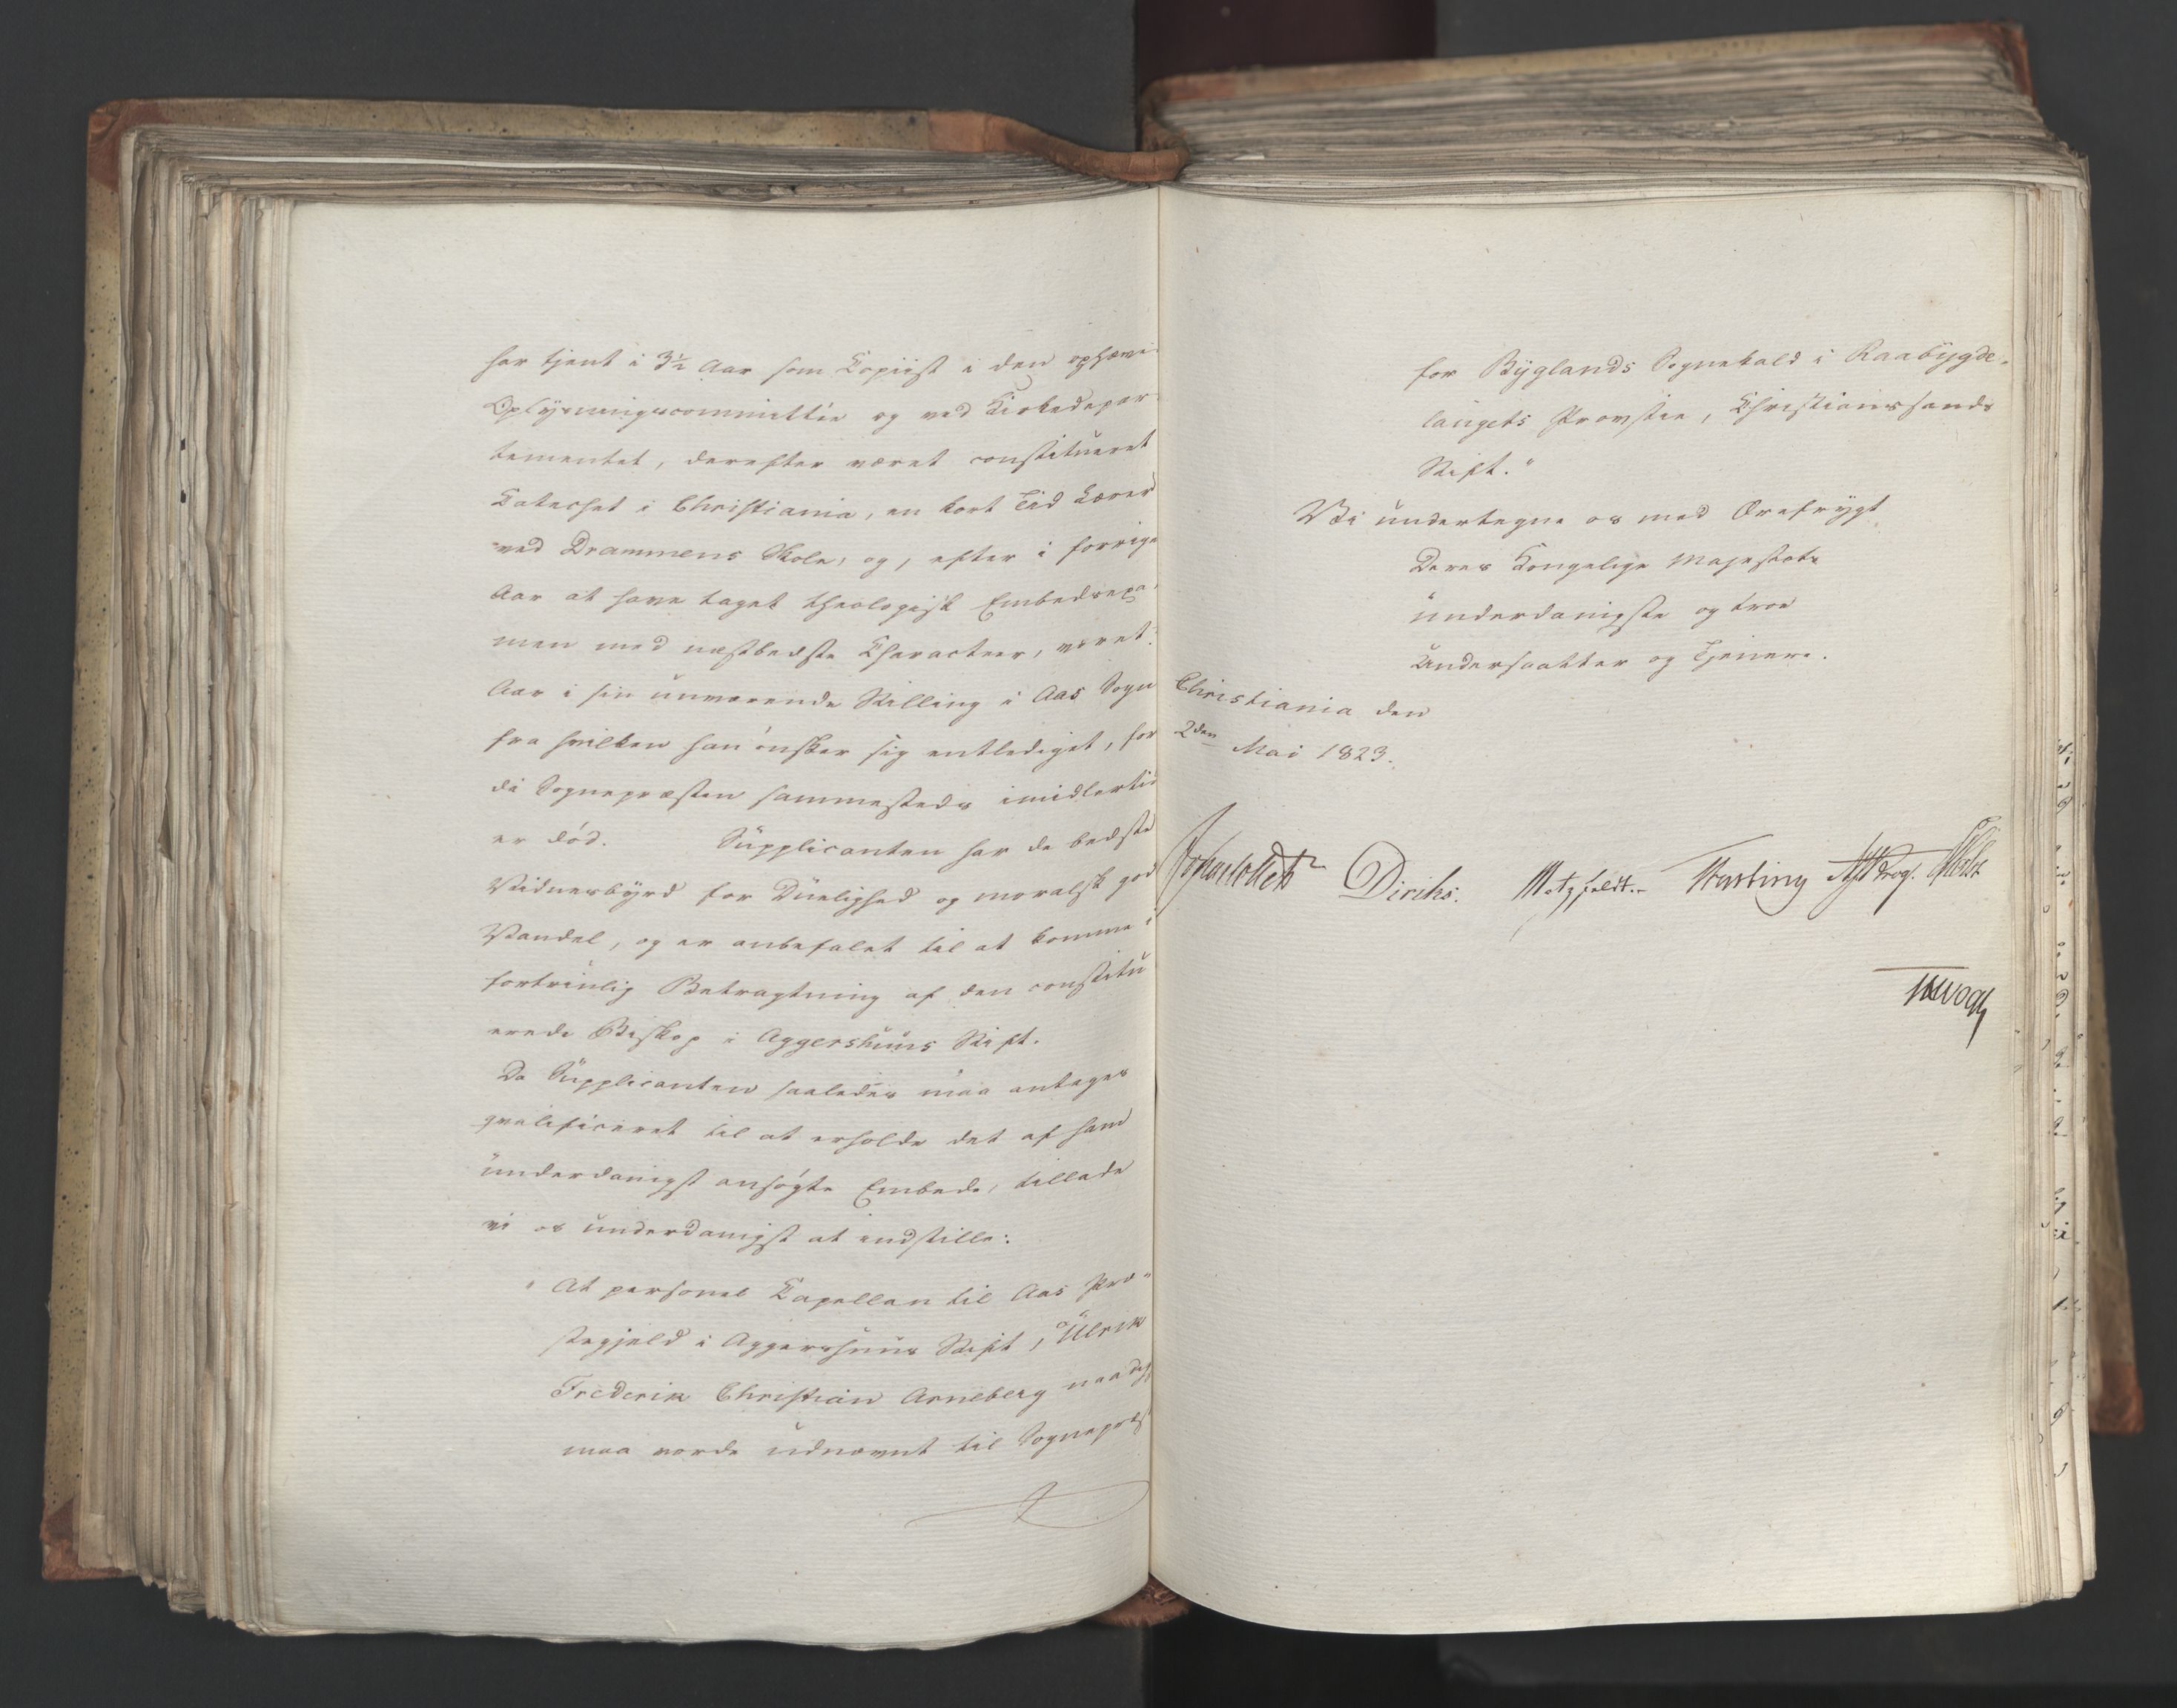 har tjent i 3½ Aar som Copiist i den ophævede
Oplysningscommittée og ved Kirkedepar-
tementet, derefter været constitueret
Catechet i Christiania, en kort Tid Lærer
ved Drammens Skole, og, efter i forrige
Aar at have taget theologisk Embedsexa-
men med næstbedste Characteer, været
Aar i sin nuværende Stilling i Aas Sogn
fra hvilken han ønsker sig entlediget, for
di Sognepræsten sammesteds imidlertid
er død. Supplicanten har de bedste
Vidnesbyrd for Duelighed og moralsk god
Vandel, og er anbefalet til at komme i
fortrinlig Betragtning af den constitu
erede Biskop i Aggershuus Stift.
Da Supplicanten saaledes maa antages
qvalificeret til at erholde det af ham
underdanigst ansøgte Embede, tillade
vi os underdanigst at indstille:
"At personel Capellan til Aas Præ-
stegjeld i Aggershuus Stift, Ulrik
Frederik Christian Arneberg naadigst
maa vorde udnævnt til Sognepræst
for Byglands Sognekald i Raabygde-
laugets Provstie, Christianssands
Stift."
Vi undertegne os med Ærefrygt
Deres Kongelige Majestæts
underdanigste og troe
Undersaatter og Tjenere.
Christiania den
2den Mai 1823.
Diriks. Motzfeldt.